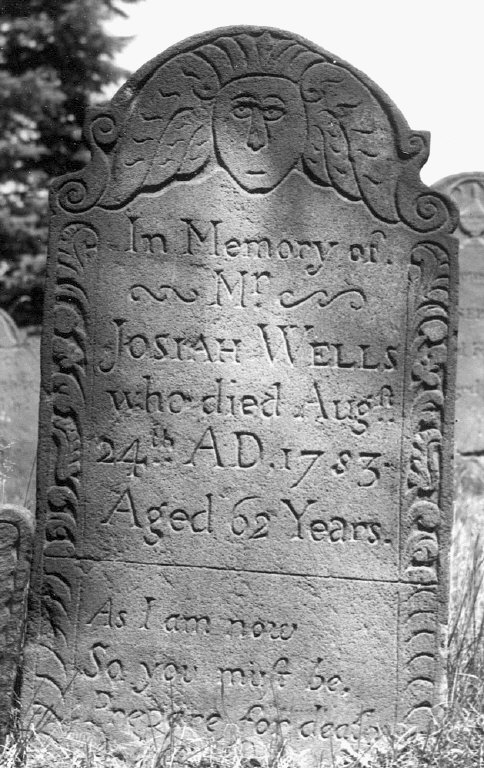 In Memory of.
Mr
JOSIAH WELLS
who died Augſt
24th AD. 1783
Aged 62 Years.
As I am now
So you muſt be.
Prepare for death